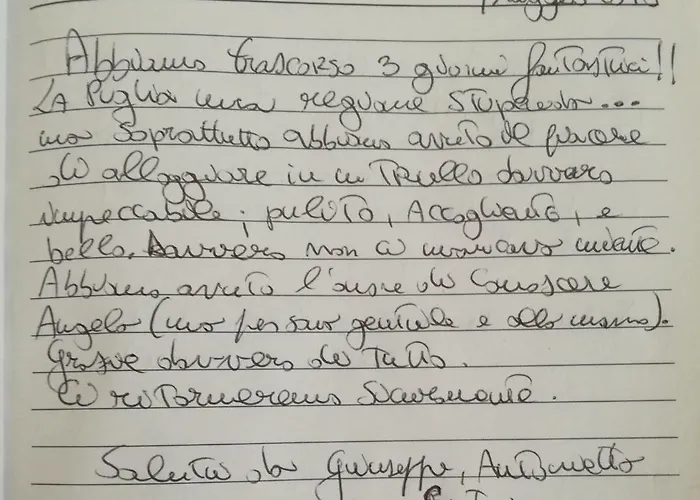 Abbiamo trascorso 3 giorni fantastici!!
La Puglia una regione stupenda...
ma soprattutto abbiamo avuto il piacere
di alloggiare in un Trullo davvero
impeccabile; pulito, accogliente, e
bello. Davvero non ci mancava niente.
Abbiamo avuto l'onore di conoscere
Angelo (una persona gentile e alla mano).
Grazie davvero di Tutto.
Ci ritorneremo sicuramente.
Saluti da Giuseppe, Antonietta